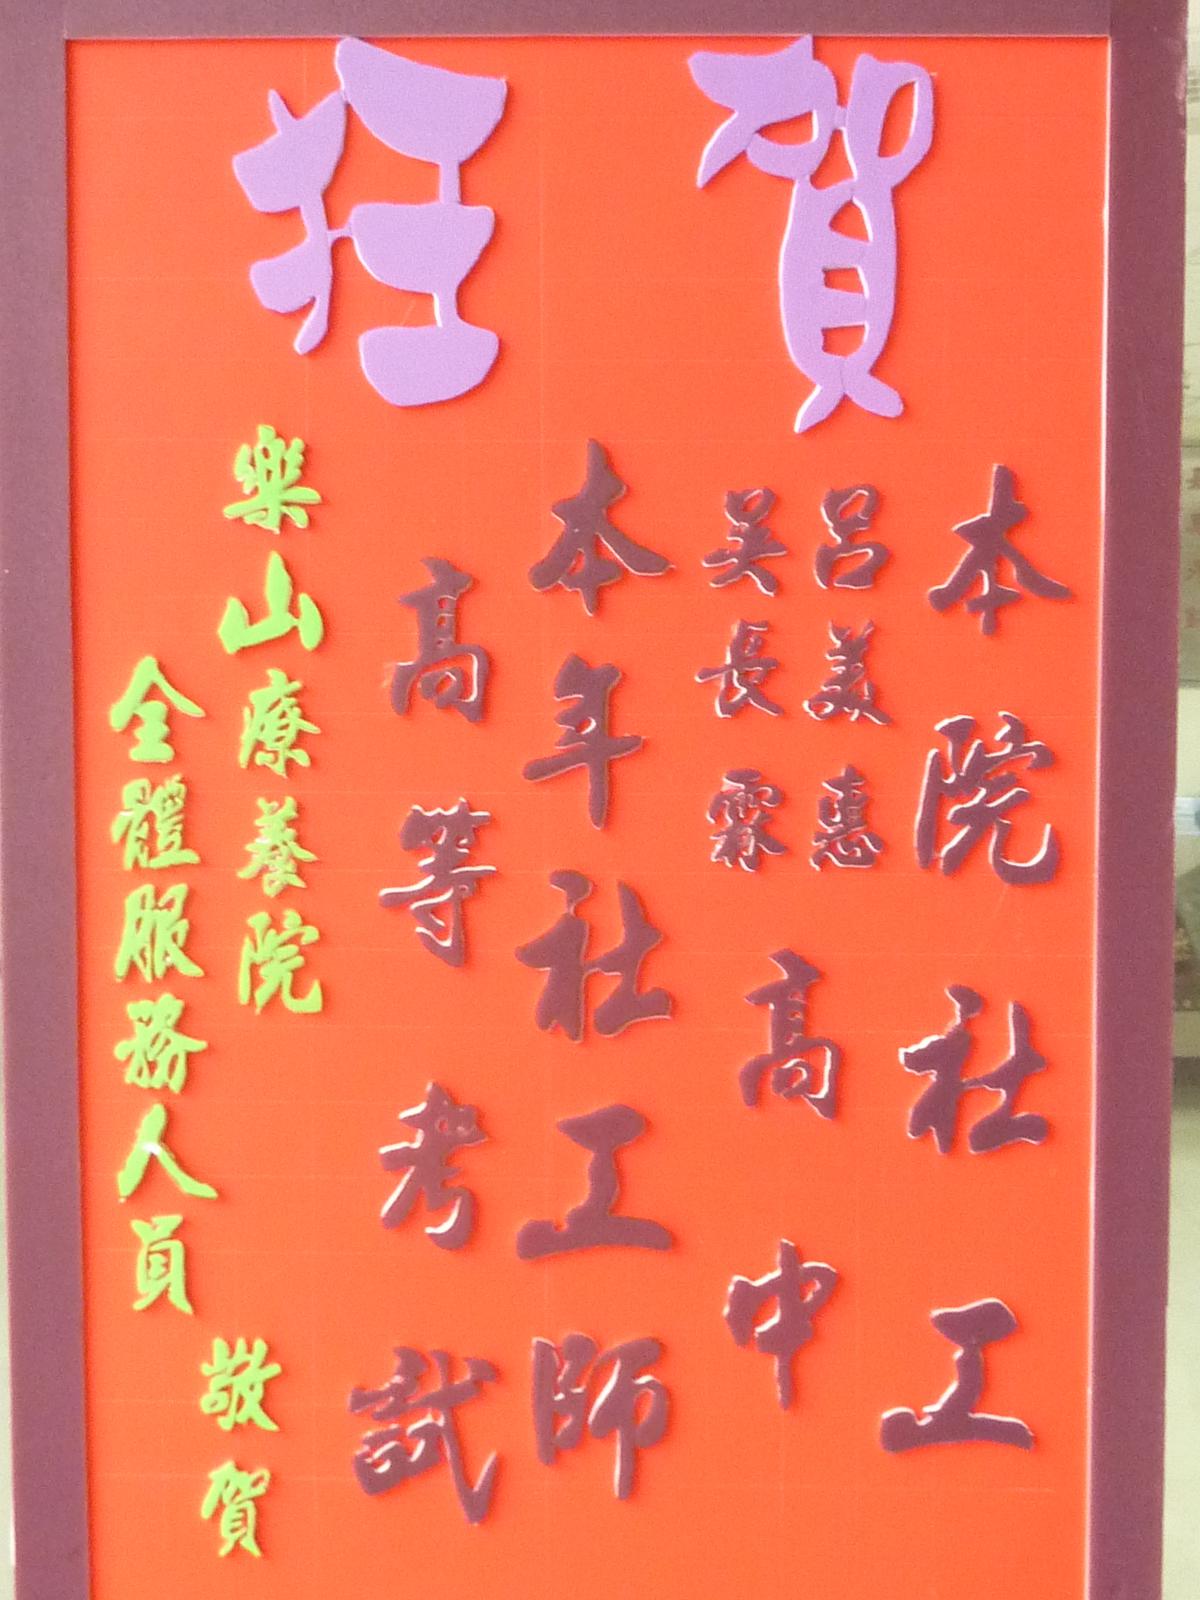 狂賀
本院社工
呂美惠
吳長霖
高中
本年社工師
高等考試
樂山療養院
全體服務人員
敬賀